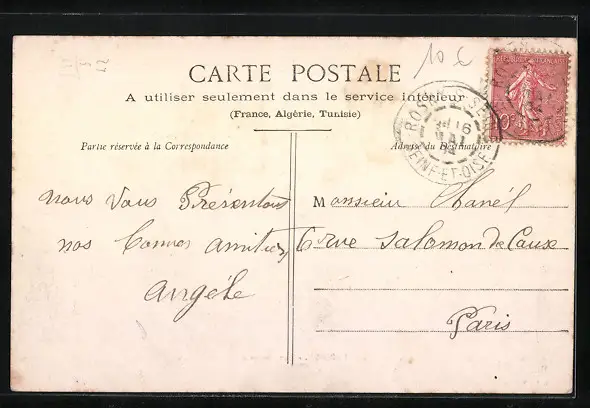 10 €
CARTE POSTALE
A utiliser seulement dans le service intérieur
(France, Algérie, Tunisie)
Partie réservée à la Correspondance
Adresse du Destinataire
nous vous Présentons
nos bonnes amitiés
Angèle
Monsieur Hanél
6 rue Salomon de Caux
Paris
RÉPUBLIQUE FRANÇAISE
10c
16
MAI
SEINE-ET-OISE